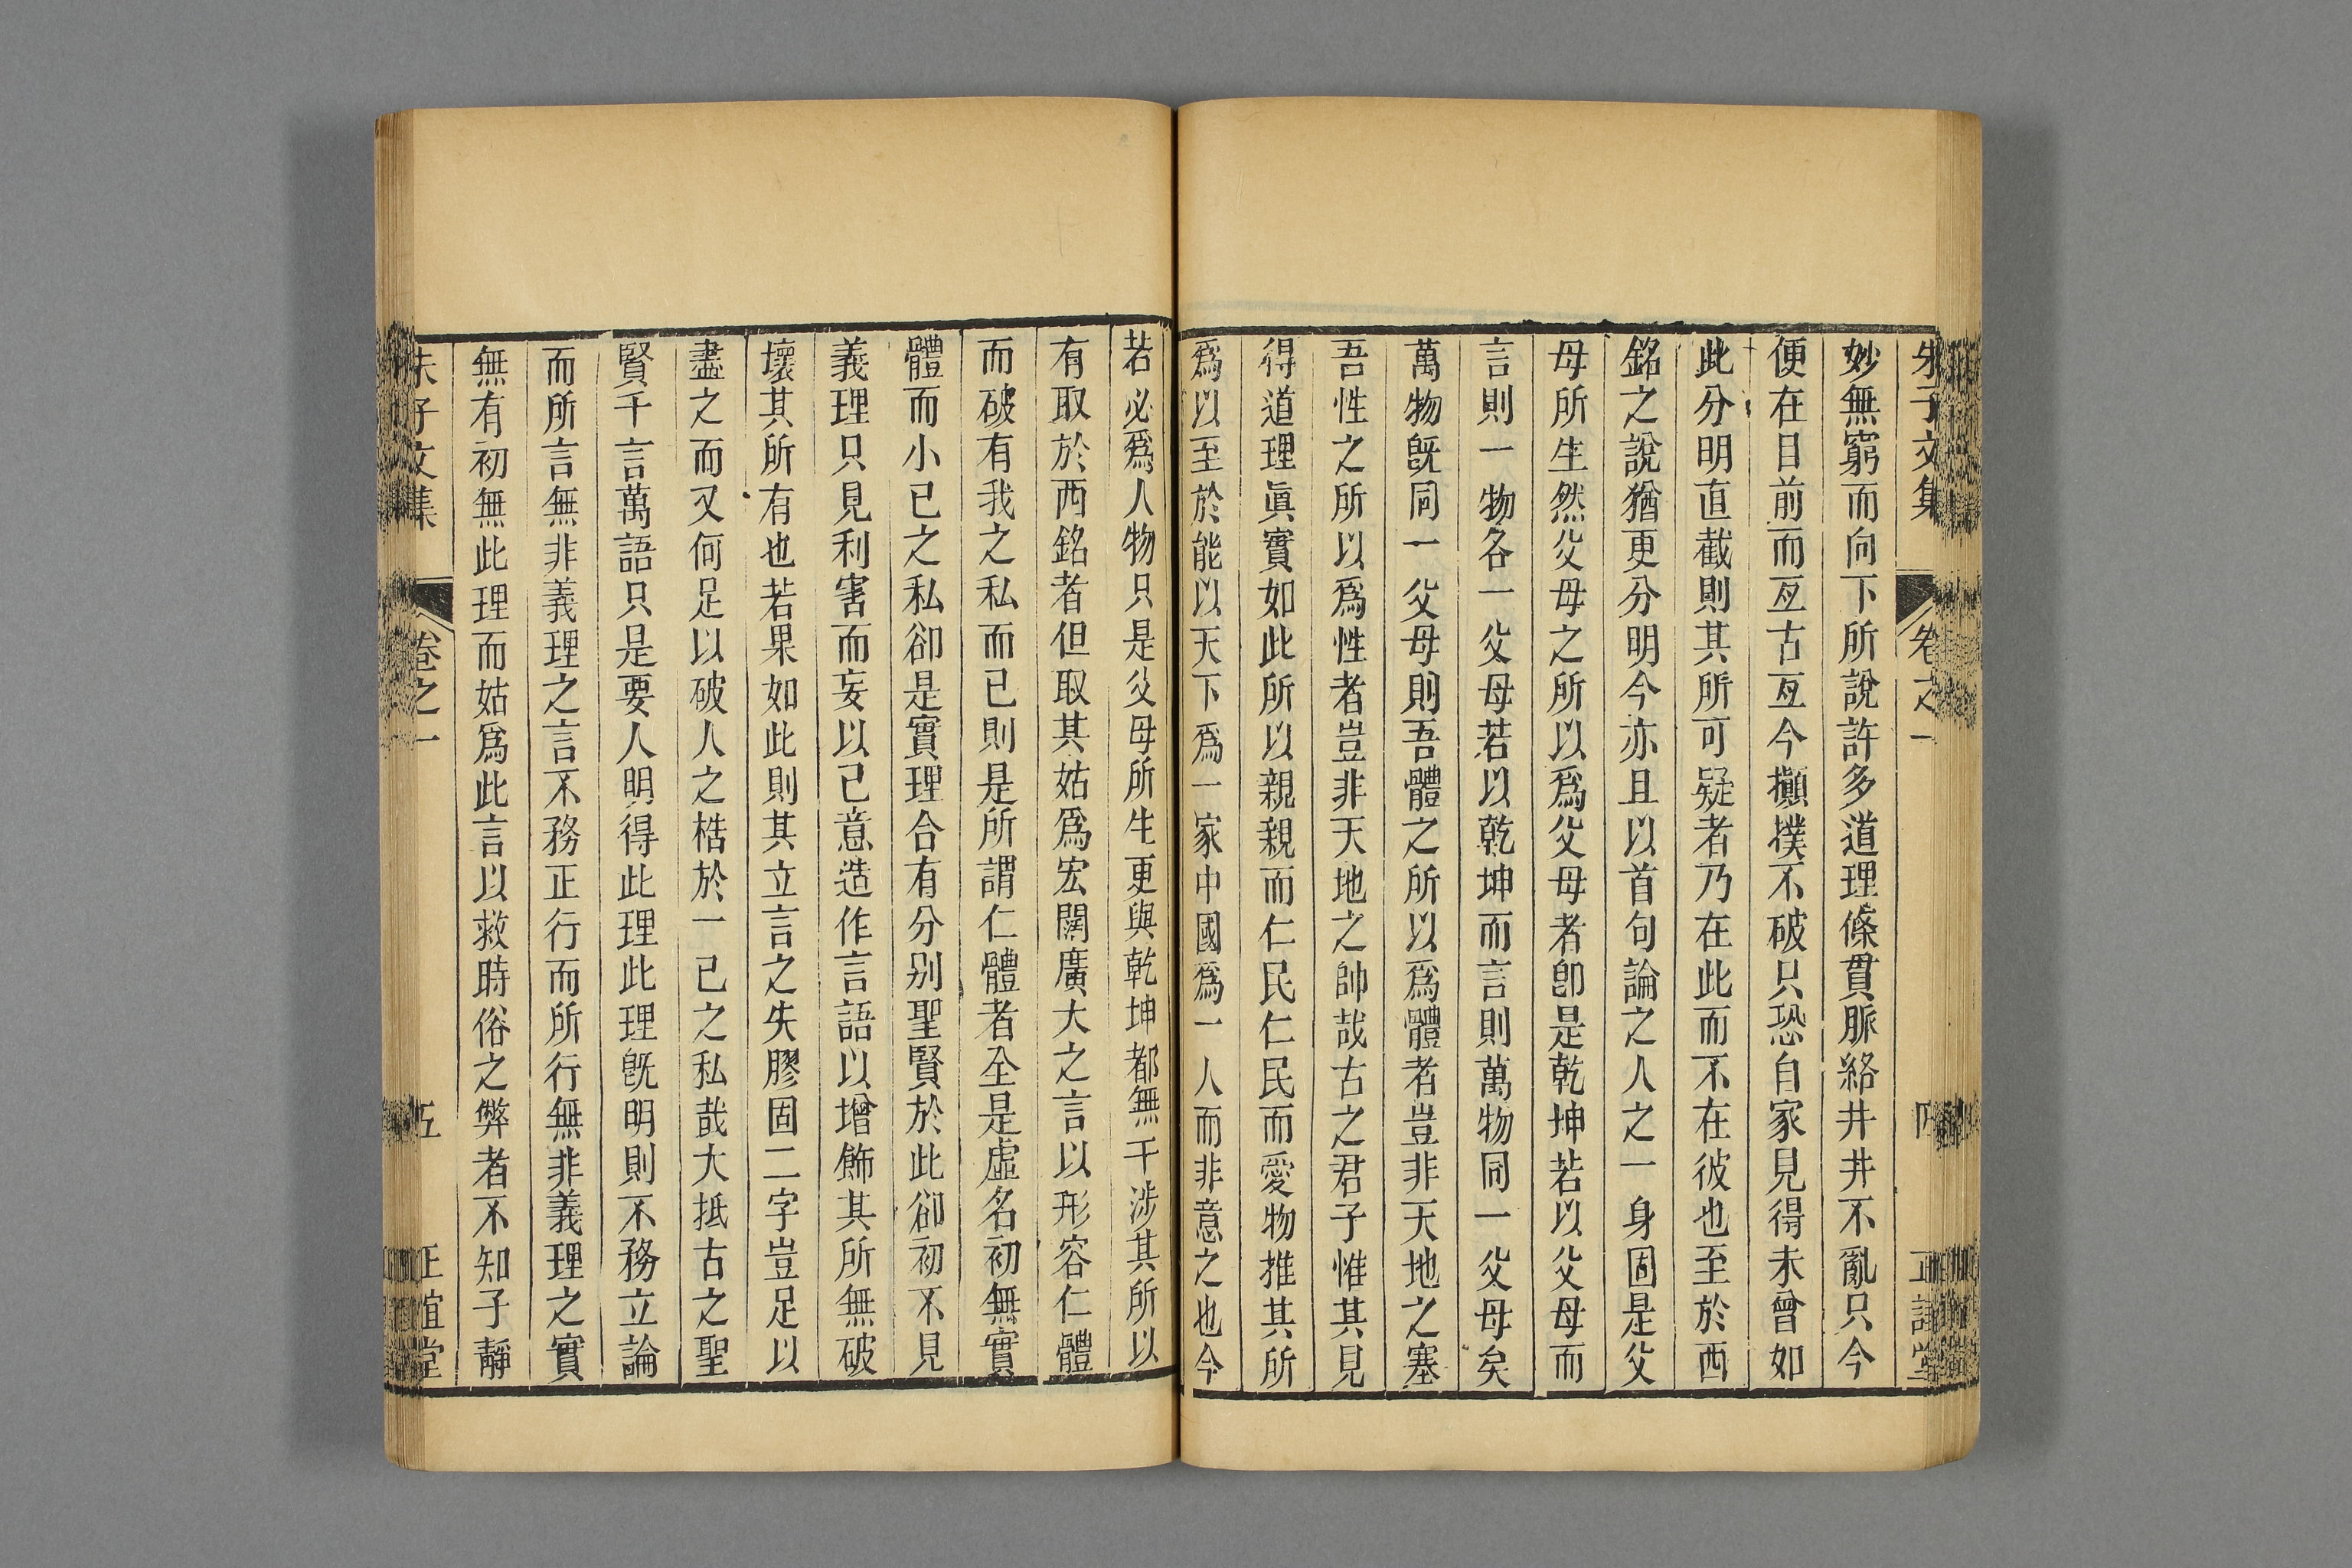 朱子文集 卷之一 四 正誼堂
妙無窮而向下所說許多道理條貫脈絡井井不亂只今
便在目前而亙古亙今攧撲不破只恐自家見得未曾如
此分明直截則其所可疑者乃在此而不在彼也至於西
銘之說猶更分明今亦且以首句論之人之一身固是父
母所生然父母之所以爲父母者卽是乾坤若以父母而
言則一物各一父母若以乾坤而言則萬物同一父母矣
萬物旣同一父母則吾體之所以爲體者豈非天地之塞
吾性之所以爲性者豈非天地之帥哉古之君子惟其見
得道理眞實如此所以親親而仁民仁民而愛物推其所
爲以至於能以天下爲一家中國爲一人而非意之也今
若必爲人物只是父母所生更與乾坤都無干涉其所以
有取於西銘者但取其姑爲宏闊廣大之言以形容仁體
而破有我之私而已則是所謂仁體者全是虛名初無實
體而小已之私卻是實理合有分别聖賢於此卻初不見
義理只見利害而妄以己意造作言語以增飾其所無破
壞其所有也若果如此則其立言之失膠固二字豈足以
盡之而又何足以破人之梏於一己之私哉大抵古之聖
賢千言萬語只是要人明得此理此理旣明則不務立論
而所言無非義理之言不務正行而所行無非義理之實
無有初無此理而姑爲此言以救時俗之弊者不知子靜
朱子文集 卷之一 五 正誼堂